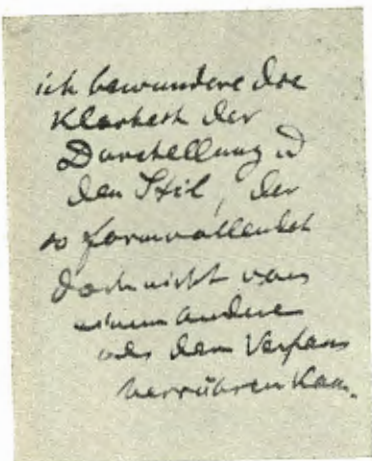 ich bewundere die
Klarheit der
Darstellung u
den Stil, der
so formvollendet
doch nicht von
einem andern
als dem Verfass
herrühren kann.